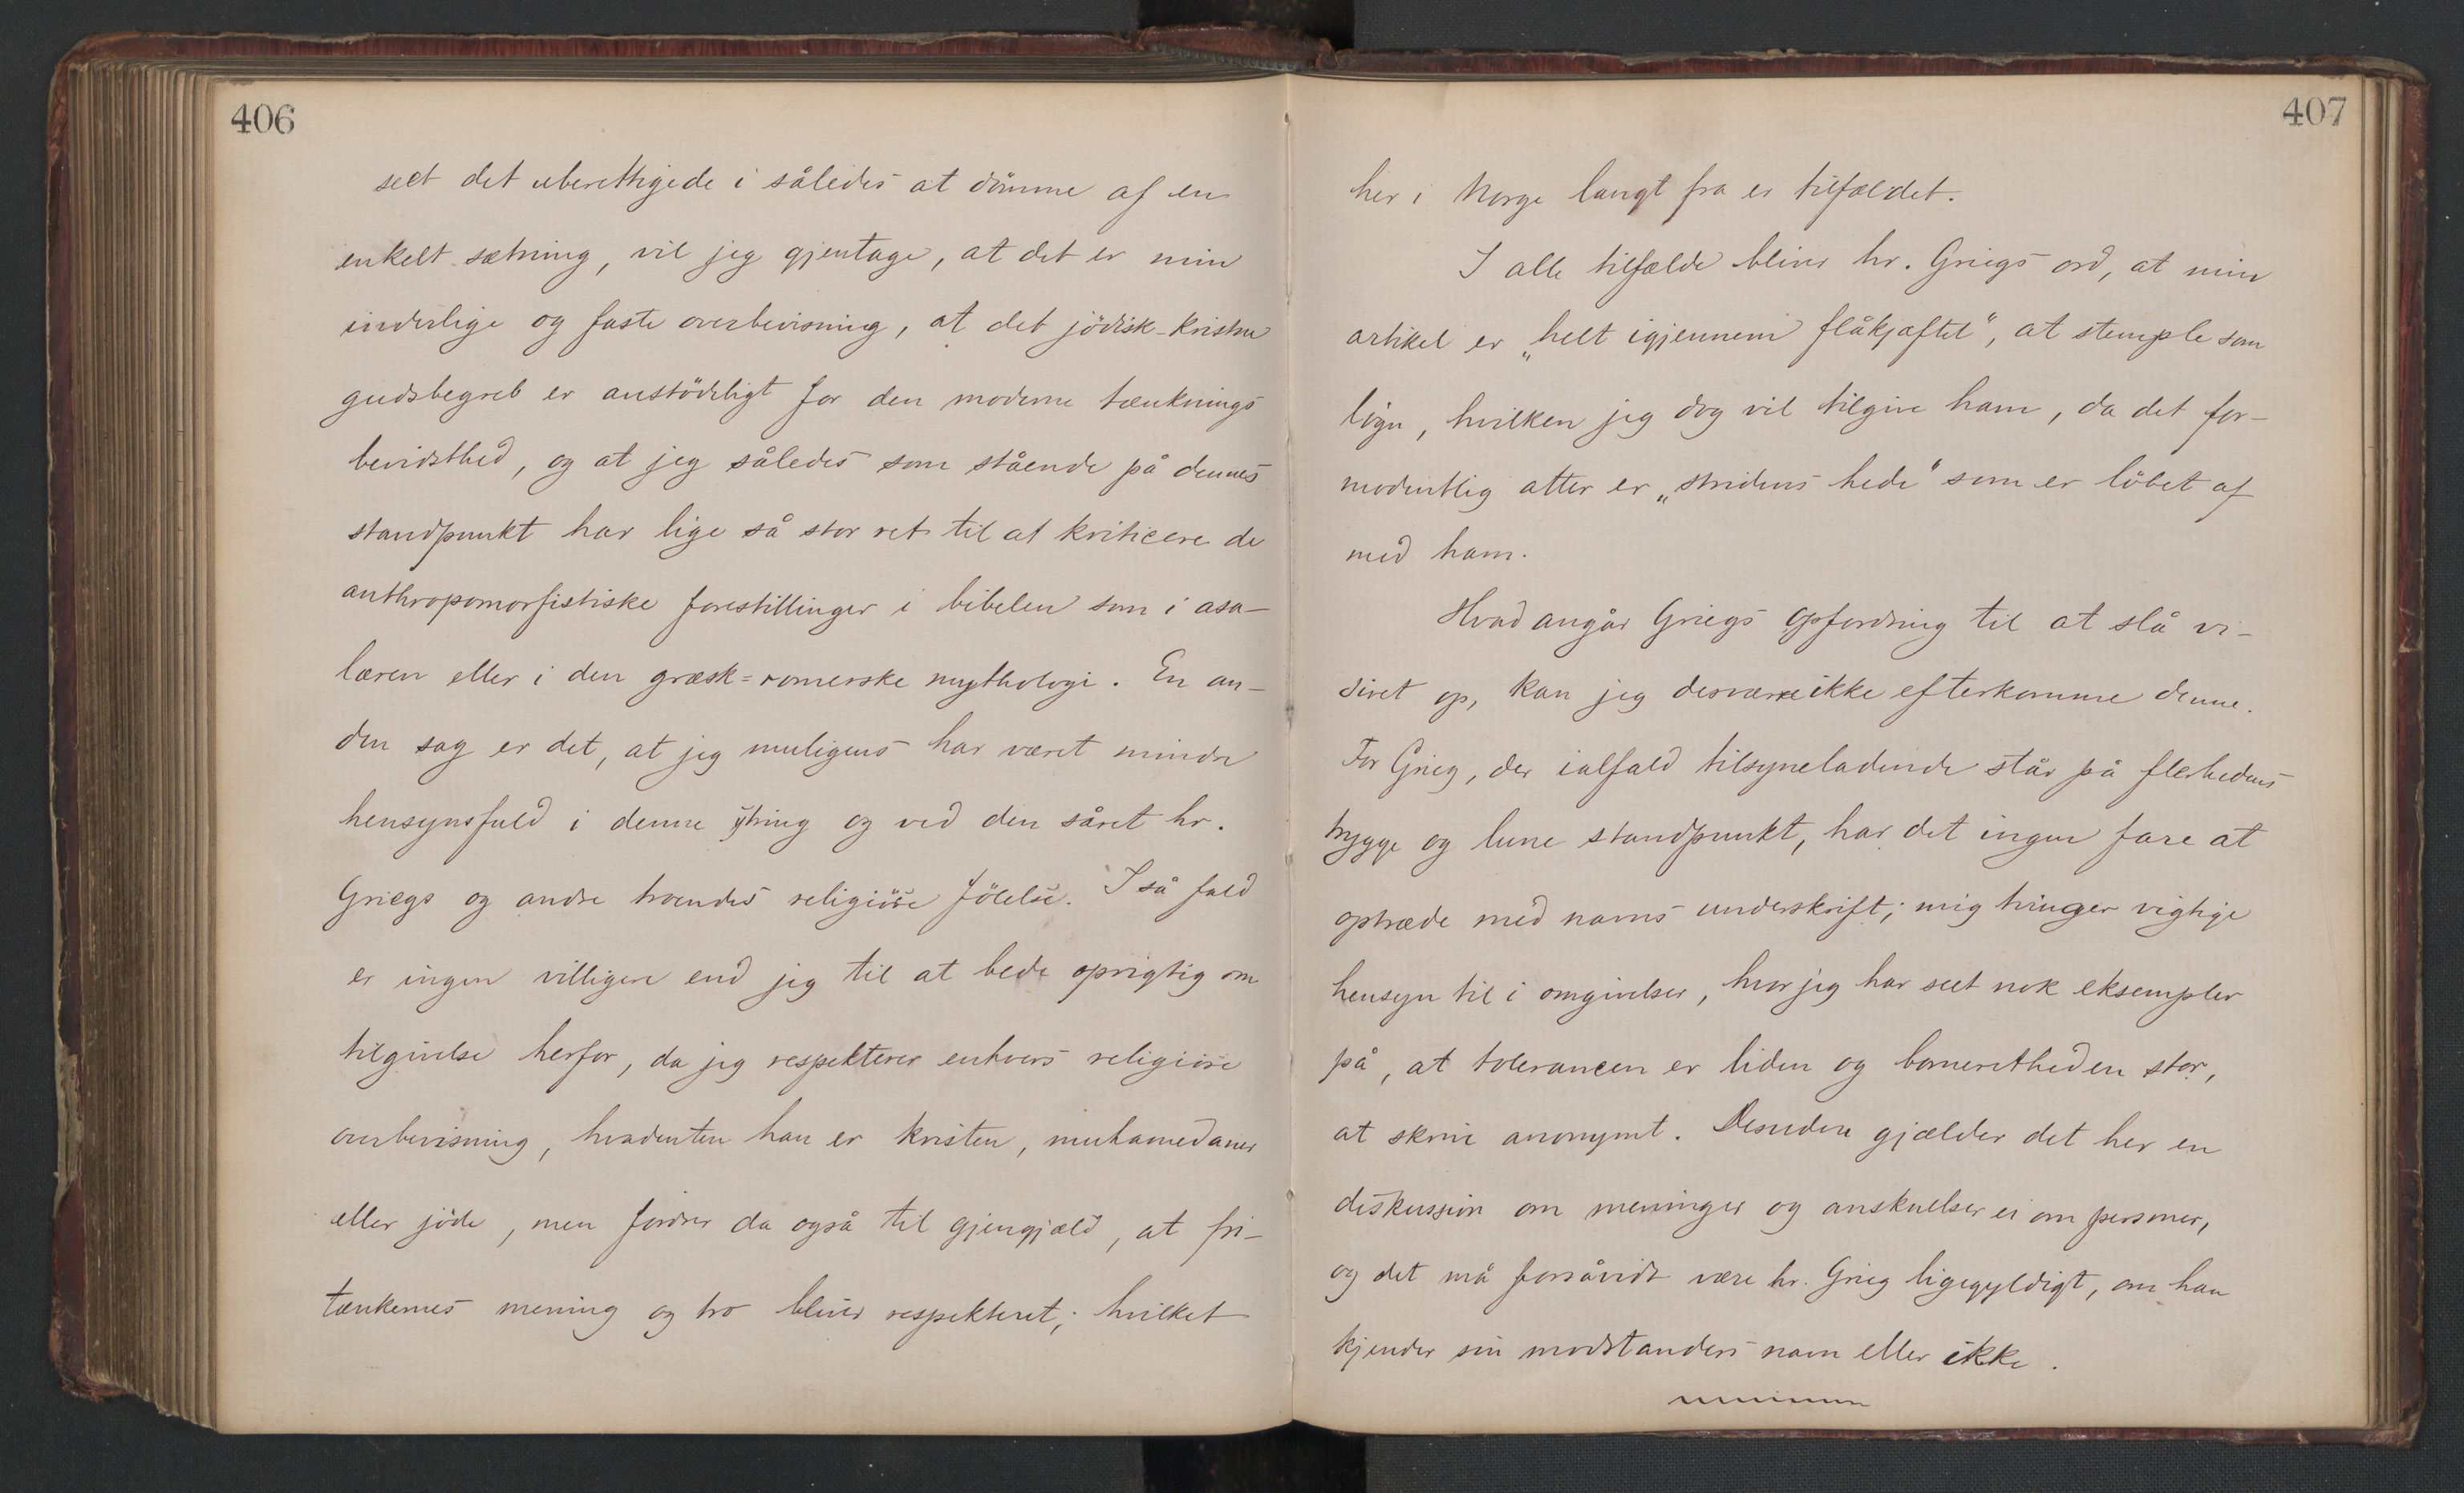 406
seet det uberettigede i således at dömme af en
enkelt sætning, vil jeg gjentage, at det er min
inderlige og faste overbevisning, at det jödisk-kristne
gudsbegreb er anstödeligt for den moderne tænknings
bevidsthed, og at jeg således som stående på dennes
standpunkt har lige så stor ret til at kriticere de
anthropomorfistiske forestillinger i bibelen som i asa-
læren eller i den græsk=romerske mythologi. En an-
den sag er det, at jeg muligens har været mindre
hensynsfuld i denne ytring og ved den såret hr.
Griegs og andre troendes religiöse fölelse. I så fald
er ingen villigere end jeg til at bede oprigtig om
tilgivelse herfor, da jeg respekterer enhvers religiöse
overbevisning, hvadenten han er kristen, muhamedaner
eller jöde, men fordrer da også til gjengjæld, at fri-
tænkernes mening og tro bliver respekteret; hvilket
407
her i Norge langt fra er tilfældet.
I alle tilfælde bliver hr. Griegs ord, at min
artikel er „helt igjennem flåkjæftet", at stemple som
lögn, hvilken jeg dog vil tilgive ham, da det for-
modentlig atter er „stridens hede" som er löbet af
med ham.
Hvad angår Griegs opfordring til at slå vi-
siret op, kan jeg desværre ikke efterkomme denne.
For Grieg, der ialfald tilsyneladende står på flerhedens
trygge og lune standpunkt, har det ingen fare at
optræde med navns underskrift; mig tvinger vigtige
hensyn til i omgivelser, hvor jeg har seet nok eksempler
på, at tolerancen er liden og bornertheden stor,
at skrive anonymt. Desuden gjælder det her en
diskussion om meninger og anskuelser ei om personer,
og det må forsåvidt være hr. Grieg ligegyldigt, om han
kjender sin modstanders navn eller ikke.